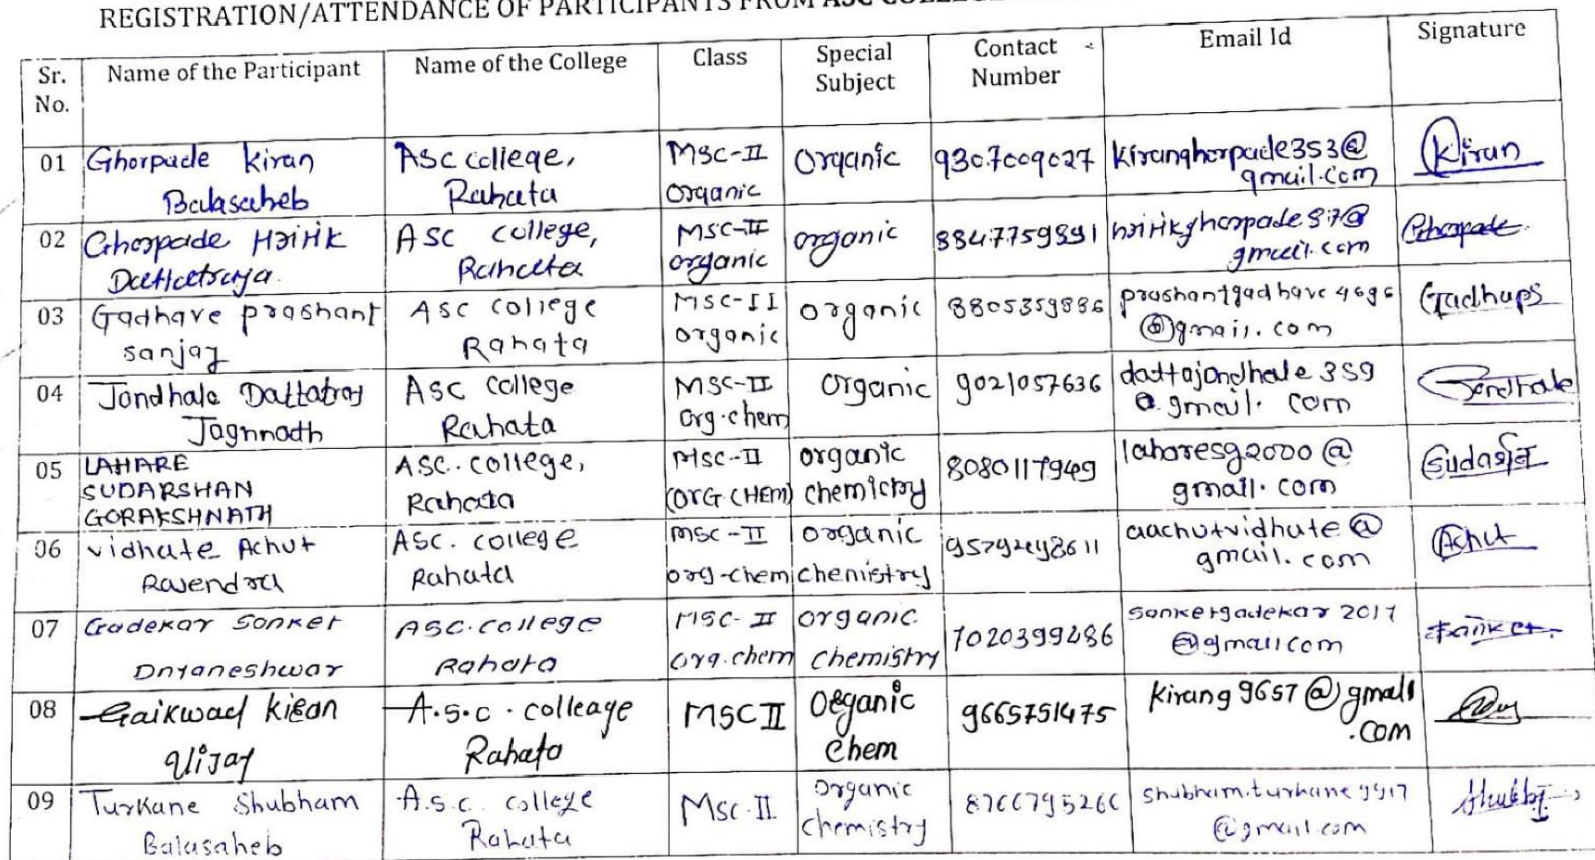 REGISTRATION/ATTENDANCE OF PARTICIPANTS FROM ASC COLLEGE
Sr. No. Name of the Participant Name of the College Class Special Subject Contact Number Email Id Signature
01 Ghorpade Kiran Balasaheb Asc college, Rahata MSC-II organic organic 9307009027 kiranghorpade353@gmail.com Kiran
02 Ghorpade Hritik Dattatraya ASC college, Rahata MSC-II organic organic 8847759891 hritikghorpade87@gmail.com Ghorpade
03 Gadhave prashant sanjay ASC college Rahata MSC-II organic organic 8805359886 prashantgadhave4696@gmail.com
04 Jondhale Dattatray Jagnnath ASC college Rahata MSC-II org.chem organic 9021057636 dattajondhale359@gmail.com Jondhale
05 LAHARE SUDARSHAN GORAKSHNATH ASC.college, Rahata MSC-II (ORG CHEM) organic chemictry 8080117949 laharesg2000@gmail.com
06 vidhate Achut Rajendra ASC. college Rahata MSC-II org-chem organic chemistry aachutvidhate@gmail.com Achut
07 Gadekar Sanket Dnyaneshwar ASC.college Rahata MSC-II org.chem organic chemistry 7020399286 sanketgadekar2017@gmail.com Sanket
08 Gaikwad kiran Vijay A.S.C. colleage Rahata MSC II Organic Chem 9665751475 kirang9657@gmail.com
09 Turkane Shubham Balasaheb A.S.C. college Rahata Msc.II organic chemistry 8766795266 @gmail.com